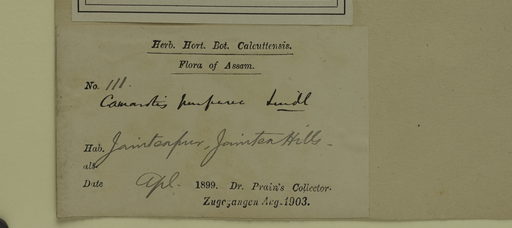 Herb. Hort. Bot. Calcuttensis.
Flora of Assam.
No. 111.
Camarotis purpurea Lindl
Hab. Jainteapur, Jaintea Hills -
alt.
Date Apl. 1899. Dr. Prain's Collector.
Zugegangen Aug. 1903.